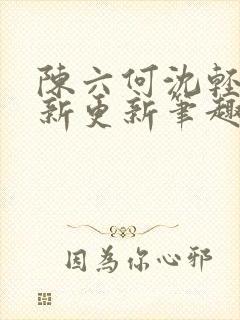 陳六何沈輕
新更新筆趣
因為你心邪